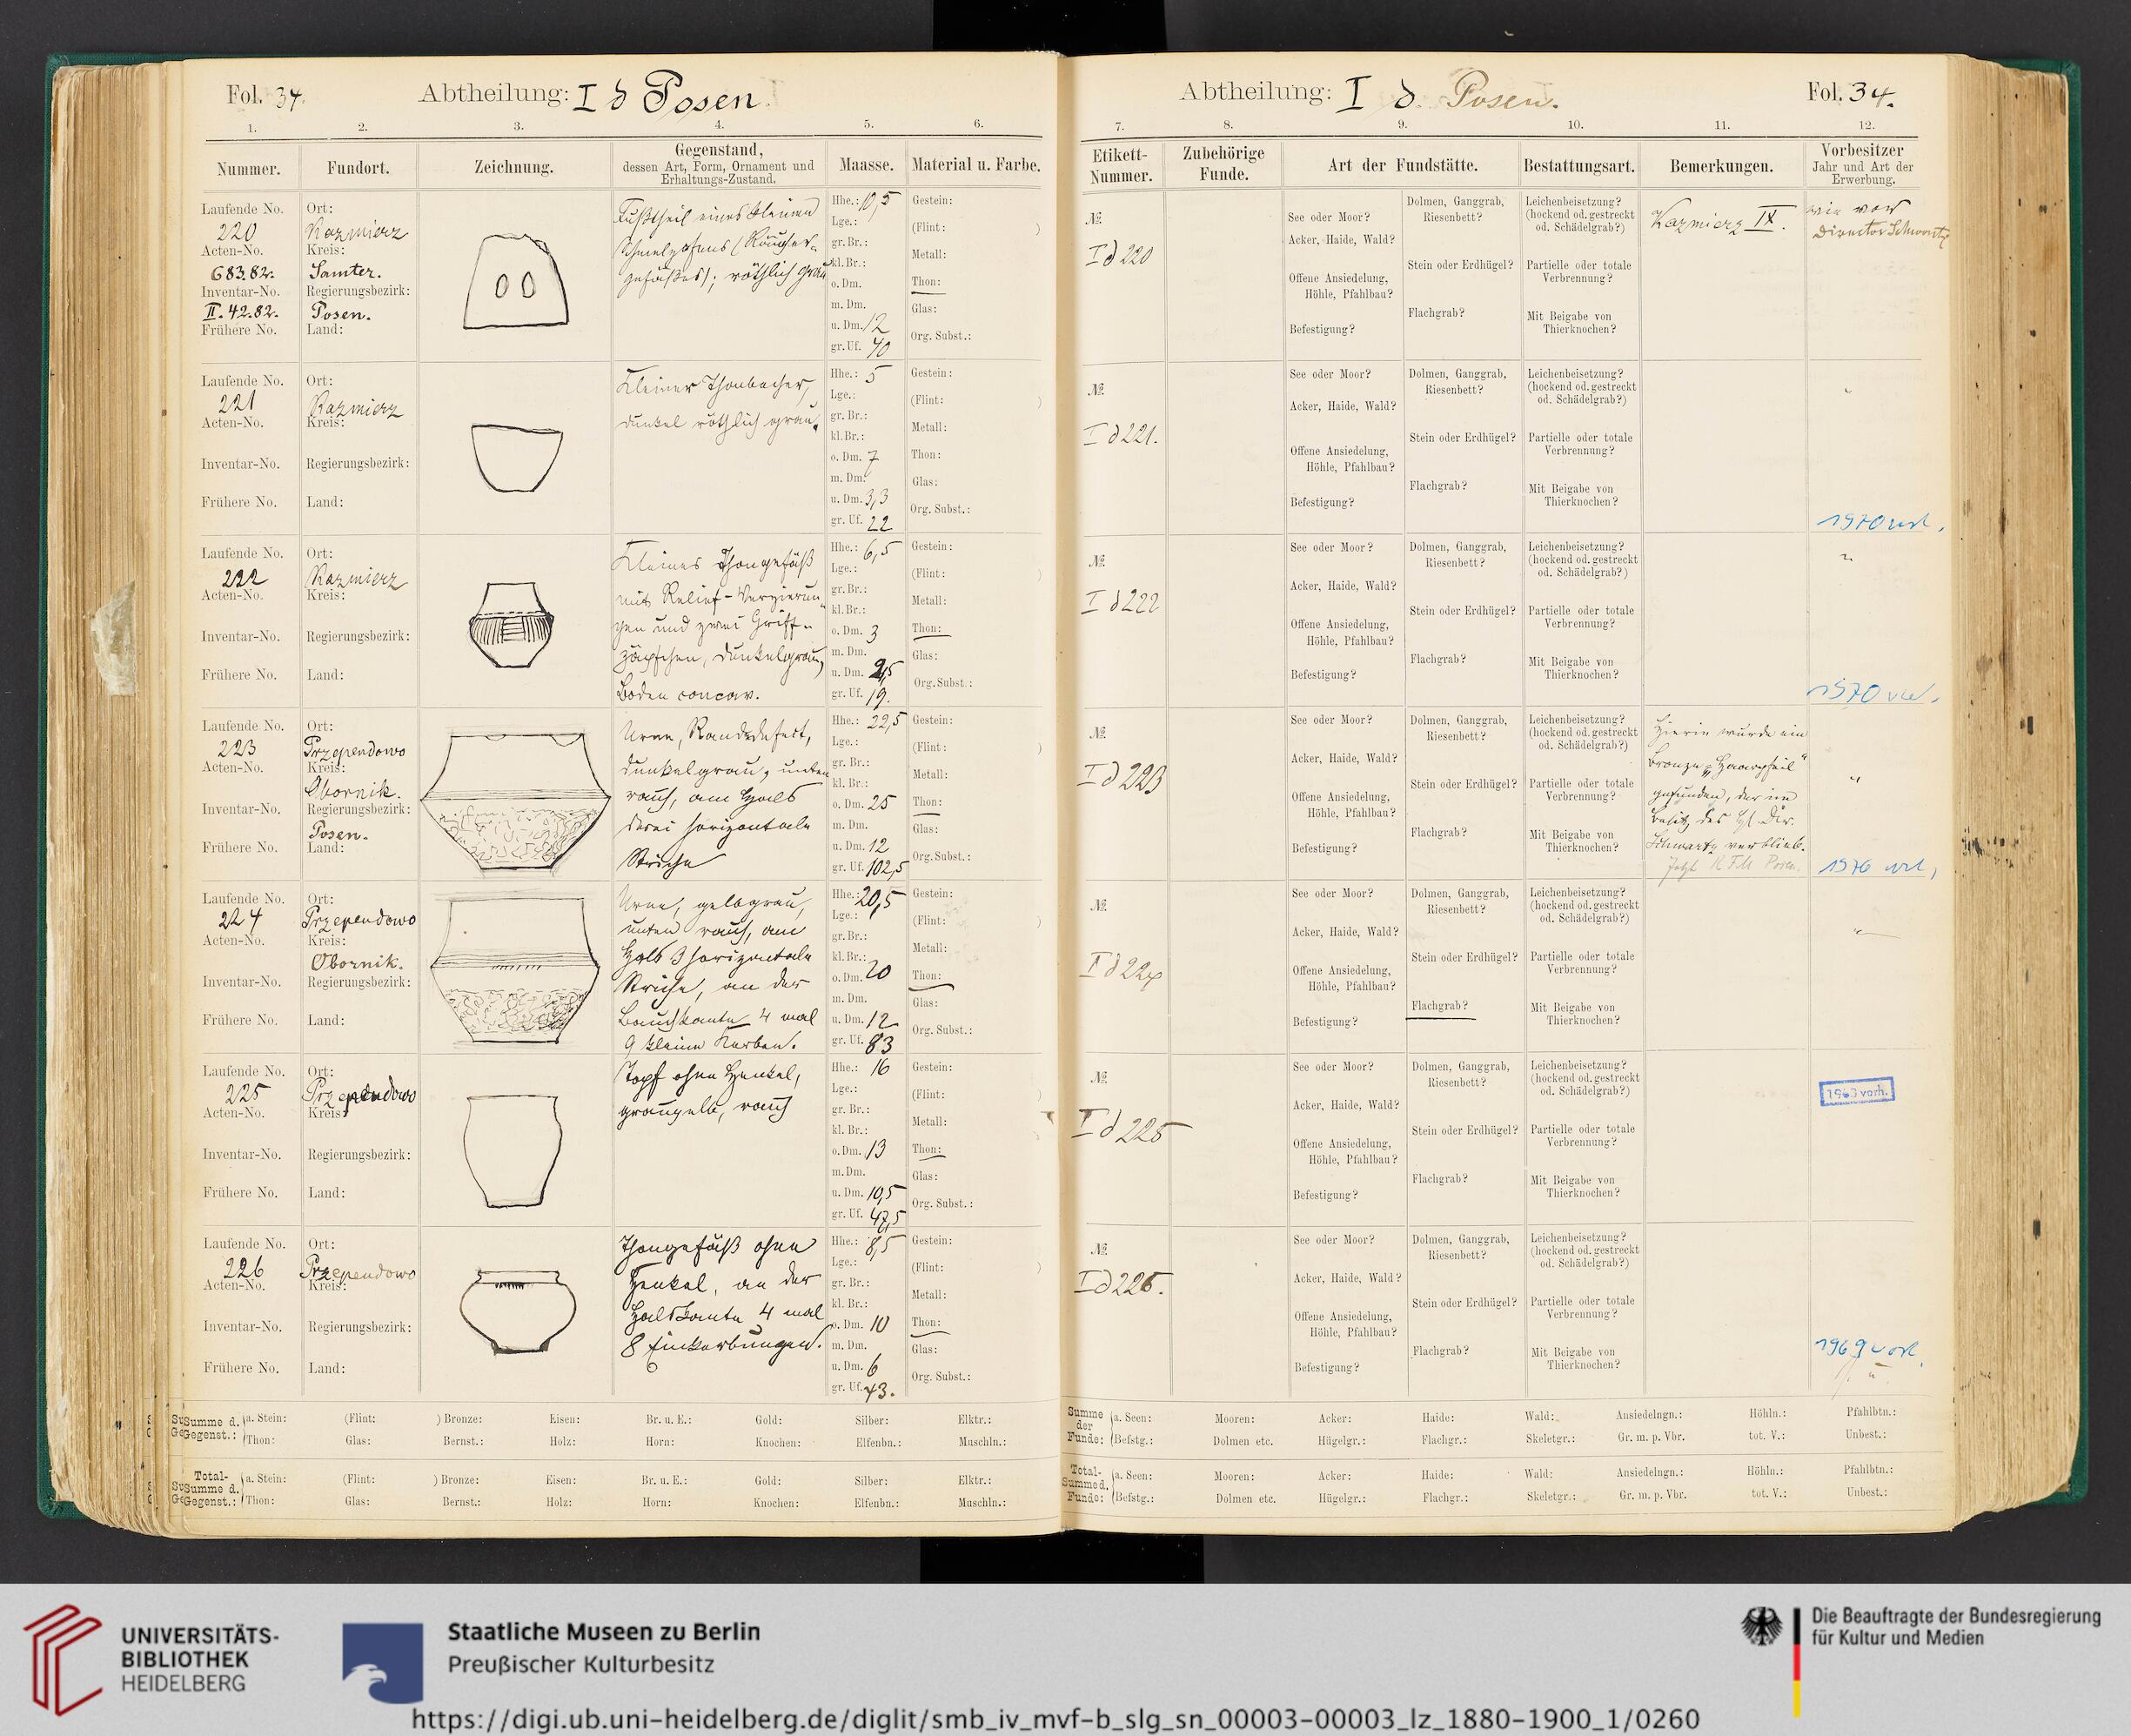 Fol. 34.
Abtheilung: I d Posen.
1. 2. 3. 4. 5. 6.
Nummer. Fundort. Zeichnung. Gegenstand, dessen Art, Form, Ornament und Erhaltungs-Zustand. Maasse. Material u. Farbe.
Laufende No. 220
Acten-No. 683.82.
Inventar-No. II. 42.82.
Frühere No.
Ort: Kazmierz
Kreis: Samter.
Regierungsbezirk: Posen.
Land:
Fußtheil eines kleinen
Schmelzofens (Räucher-
gefäßes); röthlich grau
Hhe.: 10,5
Lge.:
gr. Br.:
kl. Br.:
o. Dm.
m. Dm.
u. Dm. 12
gr. Uf. 40
Gestein:
(Flint:
Metall:
Thon:
Glas:
Org. Subst.:
Laufende No. 221
Acten-No.
Inventar-No.
Frühere No.
Ort: Kazmierz
Kreis:
Regierungsbezirk:
Land:
Kleiner Thonbecher,
dunkel röthlich grau.
Hhe.: 5
Lge.:
gr. Br.:
kl. Br.:
o. Dm. 7
m. Dm.
u. Dm. 3,3
gr. Uf. 22
Gestein:
(Flint: )
Metall:
Thon:
Glas:
Org. Subst.:
Laufende No. 222
Acten-No.
Inventar-No.
Frühere No.
Ort: Kazmierz
Kreis:
Regierungsbezirk:
Land:
Kleines Thongefäß
mit Relief-Verzierun-
gen und zwei Griff-
zäpfchen, dunkelgrau,
Boden concav.
Hhe.: 6,5
Lge.:
gr. Br.:
kl. Br.:
o. Dm. 3
m. Dm.
u. Dm. 2,5
gr. Uf. 19.
Gestein:
(Flint: )
Metall:
Thon:
Glas:
Org. Subst.:
Laufende No. 223
Acten-No.
Inventar-No.
Frühere No.
Ort: Przependowo
Kreis: Obornik.
Regierungsbezirk: Posen.
Land:
Urne, Randdefect,
dunkelgrau, unten
rauh, am Hals
drei horizontale
Striche
Hhe.: 22,5
Lge.:
gr. Br.:
kl. Br.:
o. Dm. 25
m. Dm.
u. Dm. 12
gr. Uf. 102,5
Gestein:
(Flint: )
Metall:
Thon:
Glas:
Org. Subst.:
Laufende No. 224
Acten-No.
Inventar-No.
Frühere No.
Ort: Przependowo
Kreis: Obornik.
Regierungsbezirk:
Land:
Urne, gelbgrau,
unten rauh, am
Hals 3 horizontale
Striche, an der
Bauchkante 4 mal
9 kleine Kerben.
Hhe.: 20,5
Lge.:
gr. Br.:
kl. Br.:
o. Dm. 20
m. Dm.
u. Dm. 12
gr. Uf. 83
Gestein:
(Flint: )
Metall:
Thon:
Glas:
Org. Subst.:
Laufende No. 225
Acten-No.
Inventar-No.
Frühere No.
Ort: Przependowo
Kreis:
Regierungsbezirk:
Land:
Topf ohne Henkel,
graugelb, rauh
Hhe.: 16
Lge.:
gr. Br.:
kl. Br.:
o. Dm. 13
m. Dm.
u. Dm. 10,5
gr. Uf. 47,5
Gestein:
(Flint: )
Metall:
Thon:
Glas:
Org. Subst.:
Laufende No. 226
Acten-No.
Inventar-No.
Frühere No.
Ort: Przependowo
Kreis:
Regierungsbezirk:
Land:
Thongefäß ohne
Henkel, an der
Halskante 4 mal
8 Einkerbungen.
Hhe.: 8,5
Lge.:
gr. Br.:
kl. Br.:
o. Dm. 10
m. Dm.
u. Dm. 6
gr. Uf. 43.
Gestein:
(Flint: )
Metall:
Thon:
Glas:
Org. Subst.:
Summe d. Gegenst.: a. Stein: (Flint: ) Bronze: Eisen: Br. u. E.: Gold: Silber: Elktr.:
Thon: Glas: Bernst.: Holz: Horn: Knochen: Elfenbn.: Muschln.:
Total-Summe d. Gegenst.: a. Stein: (Flint: ) Bronze: Eisen: Br. u. E.: Gold: Silber: Elktr.:
Thon: Glas: Bernst.: Holz: Horn: Knochen: Elfenbn.: Muschln.:
Abtheilung: I d. Posen.
Fol. 34.
7. 8. 9. 10. 11. 12.
Etikett-Nummer. Zubehörige Funde. Art der Fundstätte. Bestattungsart. Bemerkungen. Vorbesitzer Jahr und Art der Erwerbung.
№ I d 220
See oder Moor?
Acker, Haide, Wald?
Offene Ansiedelung, Höhle, Pfahlbau?
Befestigung?
Dolmen, Ganggrab, Riesenbett?
Stein oder Erdhügel?
Flachgrab?
Leichenbeisetzung? (hockend od. gestreckt od. Schädelgrab?)
Partielle oder totale Verbrennung?
Mit Beigabe von Thierknochen?
Kazmierz IX.
wie vor
Director Schwartz
№ I d 221.
See oder Moor?
Acker, Haide, Wald?
Offene Ansiedelung, Höhle, Pfahlbau?
Befestigung?
Dolmen, Ganggrab, Riesenbett?
Stein oder Erdhügel?
Flachgrab?
Leichenbeisetzung? (hockend od. gestreckt od. Schädelgrab?)
Partielle oder totale Verbrennung?
Mit Beigabe von Thierknochen?
"
1970 vorh.
№ I d 222
See oder Moor?
Acker, Haide, Wald?
Offene Ansiedelung, Höhle, Pfahlbau?
Befestigung?
Dolmen, Ganggrab, Riesenbett?
Stein oder Erdhügel?
Flachgrab?
Leichenbeisetzung? (hockend od. gestreckt od. Schädelgrab?)
Partielle oder totale Verbrennung?
Mit Beigabe von Thierknochen?
"
1970 vorh.
№ I d 223
See oder Moor?
Acker, Haide, Wald?
Offene Ansiedelung, Höhle, Pfahlbau?
Befestigung?
Dolmen, Ganggrab, Riesenbett?
Stein oder Erdhügel?
Flachgrab?
Leichenbeisetzung? (hockend od. gestreckt od. Schädelgrab?)
Partielle oder totale Verbrennung?
Mit Beigabe von Thierknochen?
Hierin wurde ein
Bronze „Haarpfeil"
gefunden, der im
Besitz des H. Dir.
Schwartz verblieb.
Jetzt K F M Posen.
"
№ I d 224
See oder Moor?
Acker, Haide, Wald?
Offene Ansiedelung, Höhle, Pfahlbau?
Befestigung?
Dolmen, Ganggrab, Riesenbett?
Stein oder Erdhügel?
Flachgrab?
Leichenbeisetzung? (hockend od. gestreckt od. Schädelgrab?)
Partielle oder totale Verbrennung?
Mit Beigabe von Thierknochen?
"
№ I d 225
See oder Moor?
Acker, Haide, Wald?
Offene Ansiedelung, Höhle, Pfahlbau?
Befestigung?
Dolmen, Ganggrab, Riesenbett?
Stein oder Erdhügel?
Flachgrab?
Leichenbeisetzung? (hockend od. gestreckt od. Schädelgrab?)
Partielle oder totale Verbrennung?
Mit Beigabe von Thierknochen?
vorh.
№ I d 226.
See oder Moor?
Acker, Haide, Wald?
Offene Ansiedelung, Höhle, Pfahlbau?
Befestigung?
Dolmen, Ganggrab, Riesenbett?
Stein oder Erdhügel?
Flachgrab?
Leichenbeisetzung? (hockend od. gestreckt od. Schädelgrab?)
Partielle oder totale Verbrennung?
Mit Beigabe von Thierknochen?
1969 vorh.
Summe der Funde: a. Seen: Mooren: Acker: Haide: Wald: Ansiedelngn.: Höhln.: Pfahlbtn.:
Befstg.: Dolmen etc. Hügelgr.: Flachgr.: Skeletgr.: Gr. m. p. Vbr. tot. V.: Unbest.:
Total-Summe d. Funde: a. Seen: Mooren: Acker: Haide: Wald: Ansiedelngn.: Höhln.: Pfahlbtn.:
Befstg.: Dolmen etc. Hügelgr.: Flachgr.: Skeletgr.: Gr. m. p. Vbr. tot. V.: Unbest.:
UNIVERSITÄTS-
BIBLIOTHEK
HEIDELBERG
Staatliche Museen zu Berlin
Preußischer Kulturbesitz
Die Beauftragte der Bundesregierung
für Kultur und Medien
https://digi.ub.uni-heidelberg.de/diglit/smb_iv_mvf-b_slg_sn_00003-00003_lz_1880-1900_1/0260